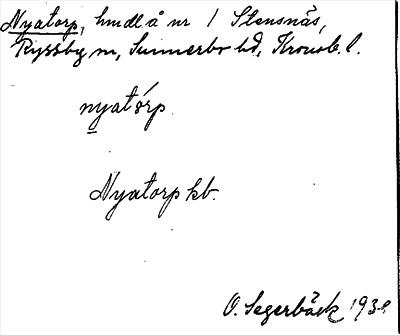 Nyatorp, hmdl å nr 1 Stensnäs,
Ryssby sn, Sunnerbo hd, Kronob. l.
nyatórp
Nyatorp kb.
O. Segerbäck 193